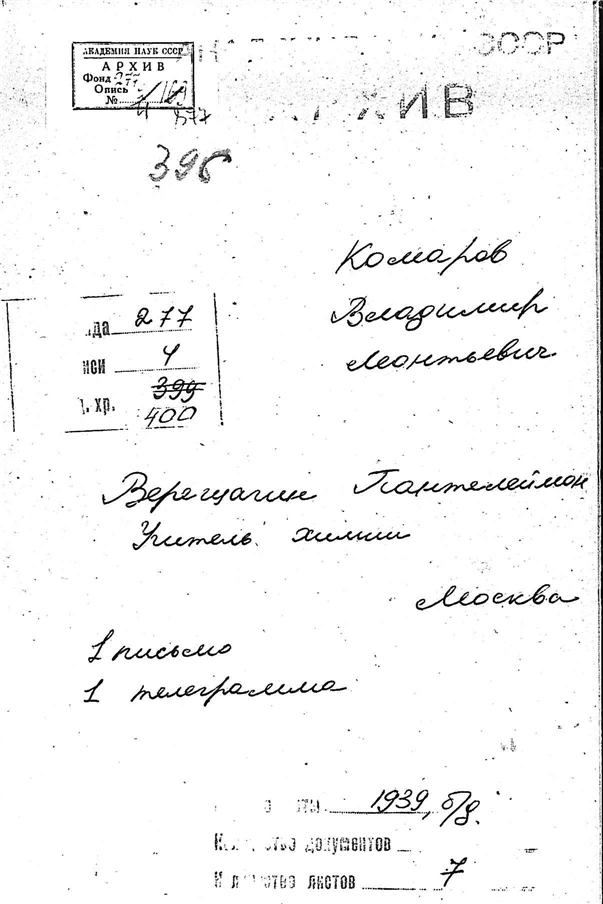 АКАДЕМИЯ НАУК СССР
АРХИВ
Фонд 277
Опись
№
СССР
АРХИВ
396
Комаров
Владимир
Леонтьевич
277
4
399
400
Верещагин Пантелеймон
Учитель химии
Москва
1 письмо
1 телеграмма
1939, б/д.
документов
листов 7